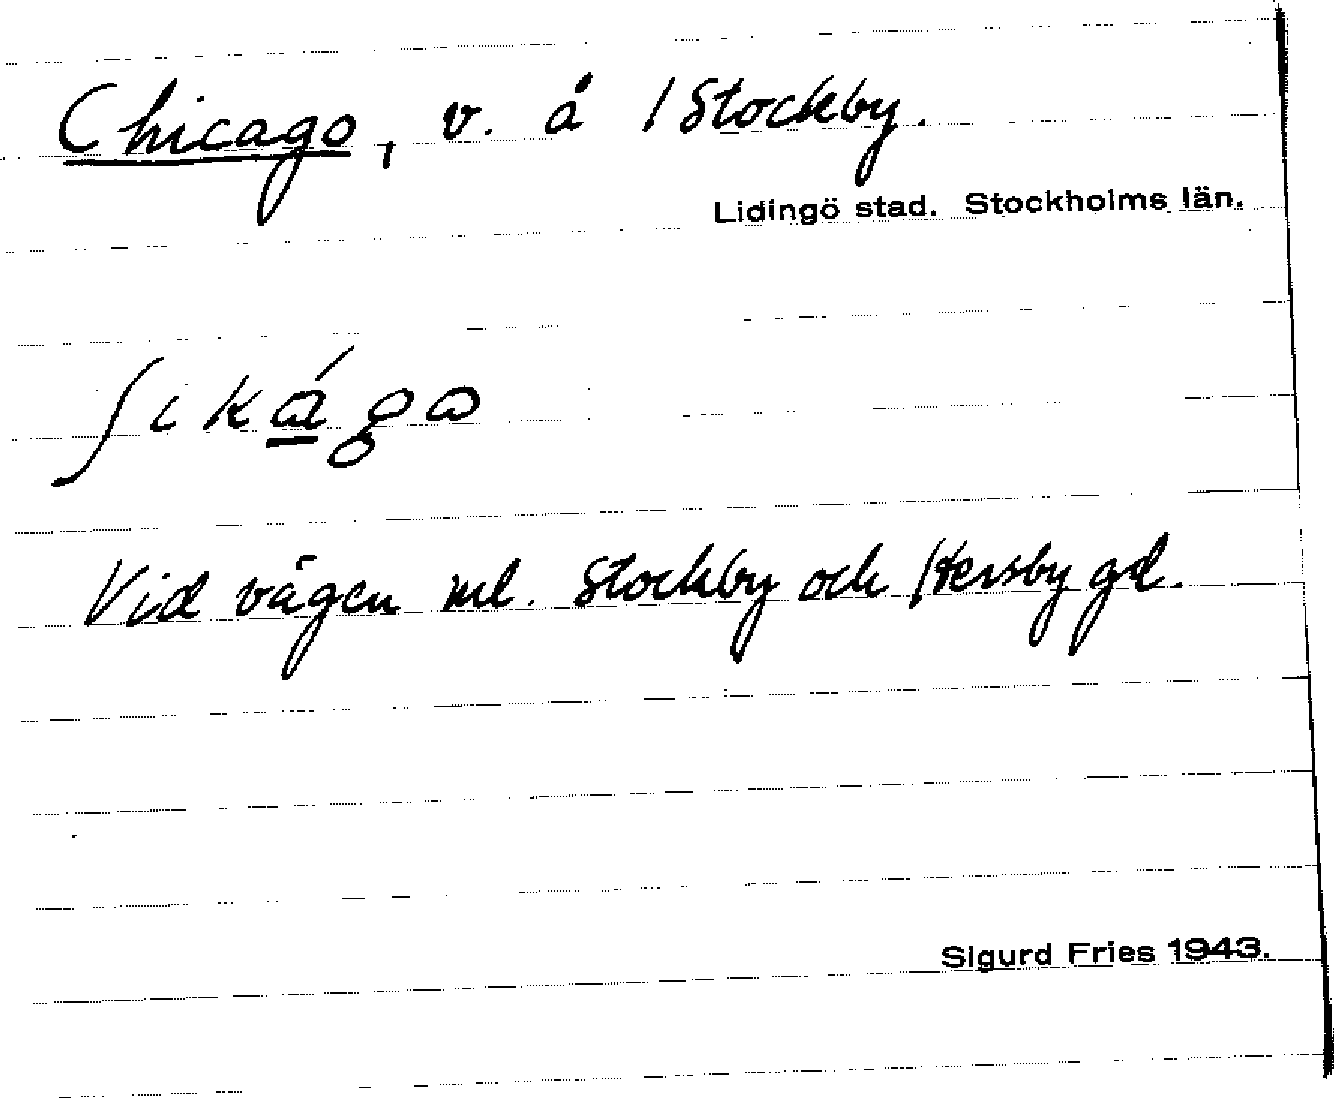 Chicago, v. å 1 Stockby.
Lidingö stad. Stockholms län.
ʃikágo
Vid vägen ml. Stockby och Hersby gd.
Sigurd Fries 1943.